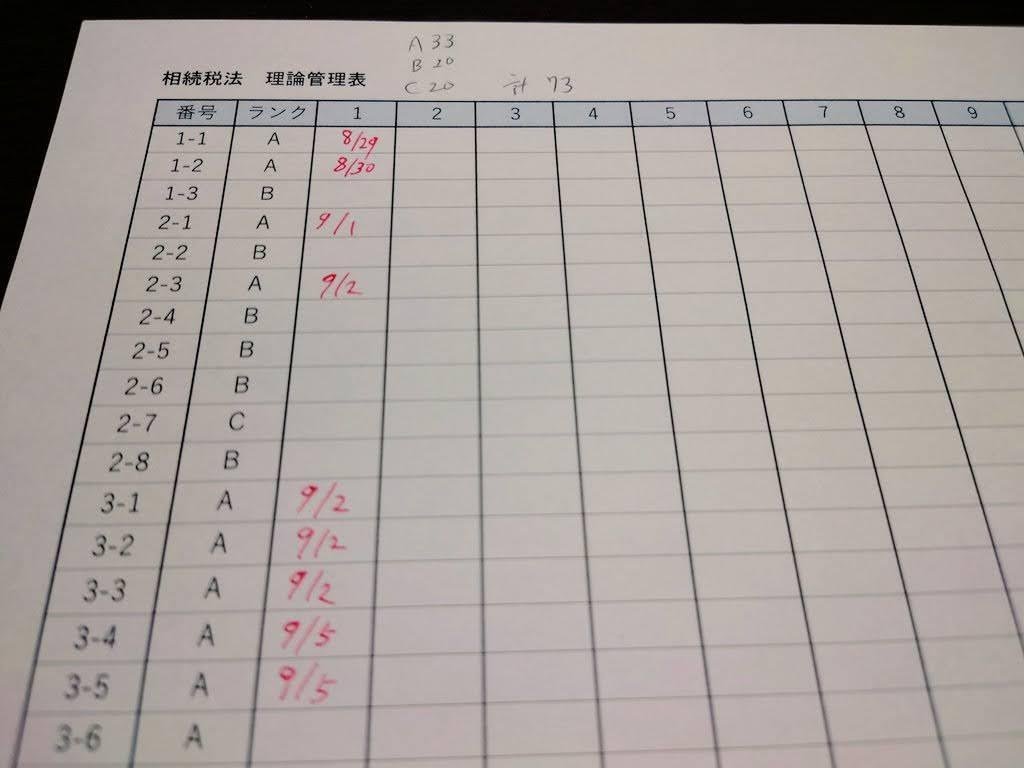 A 33
B 20
C 20 計 73
相続税法 理論管理表
番号 ランク 1 2 3 4 5 6 7 8 9
1-1 A 8/29
1-2 A 8/30
1-3 B
2-1 A 9/1
2-2 B
2-3 A 9/2
2-4 B
2-5 B
2-6 B
2-7 C
2-8 B
3-1 A 9/2
3-2 A 9/2
3-3 A 9/2
3-4 A 9/5
3-5 A 9/5
3-6 A